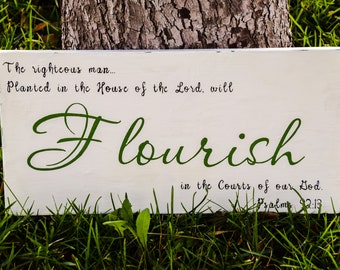 The righteous man...
Planted in the House of the Lord, will
Flourish
in the Courts of our God.
Psalms 92:13